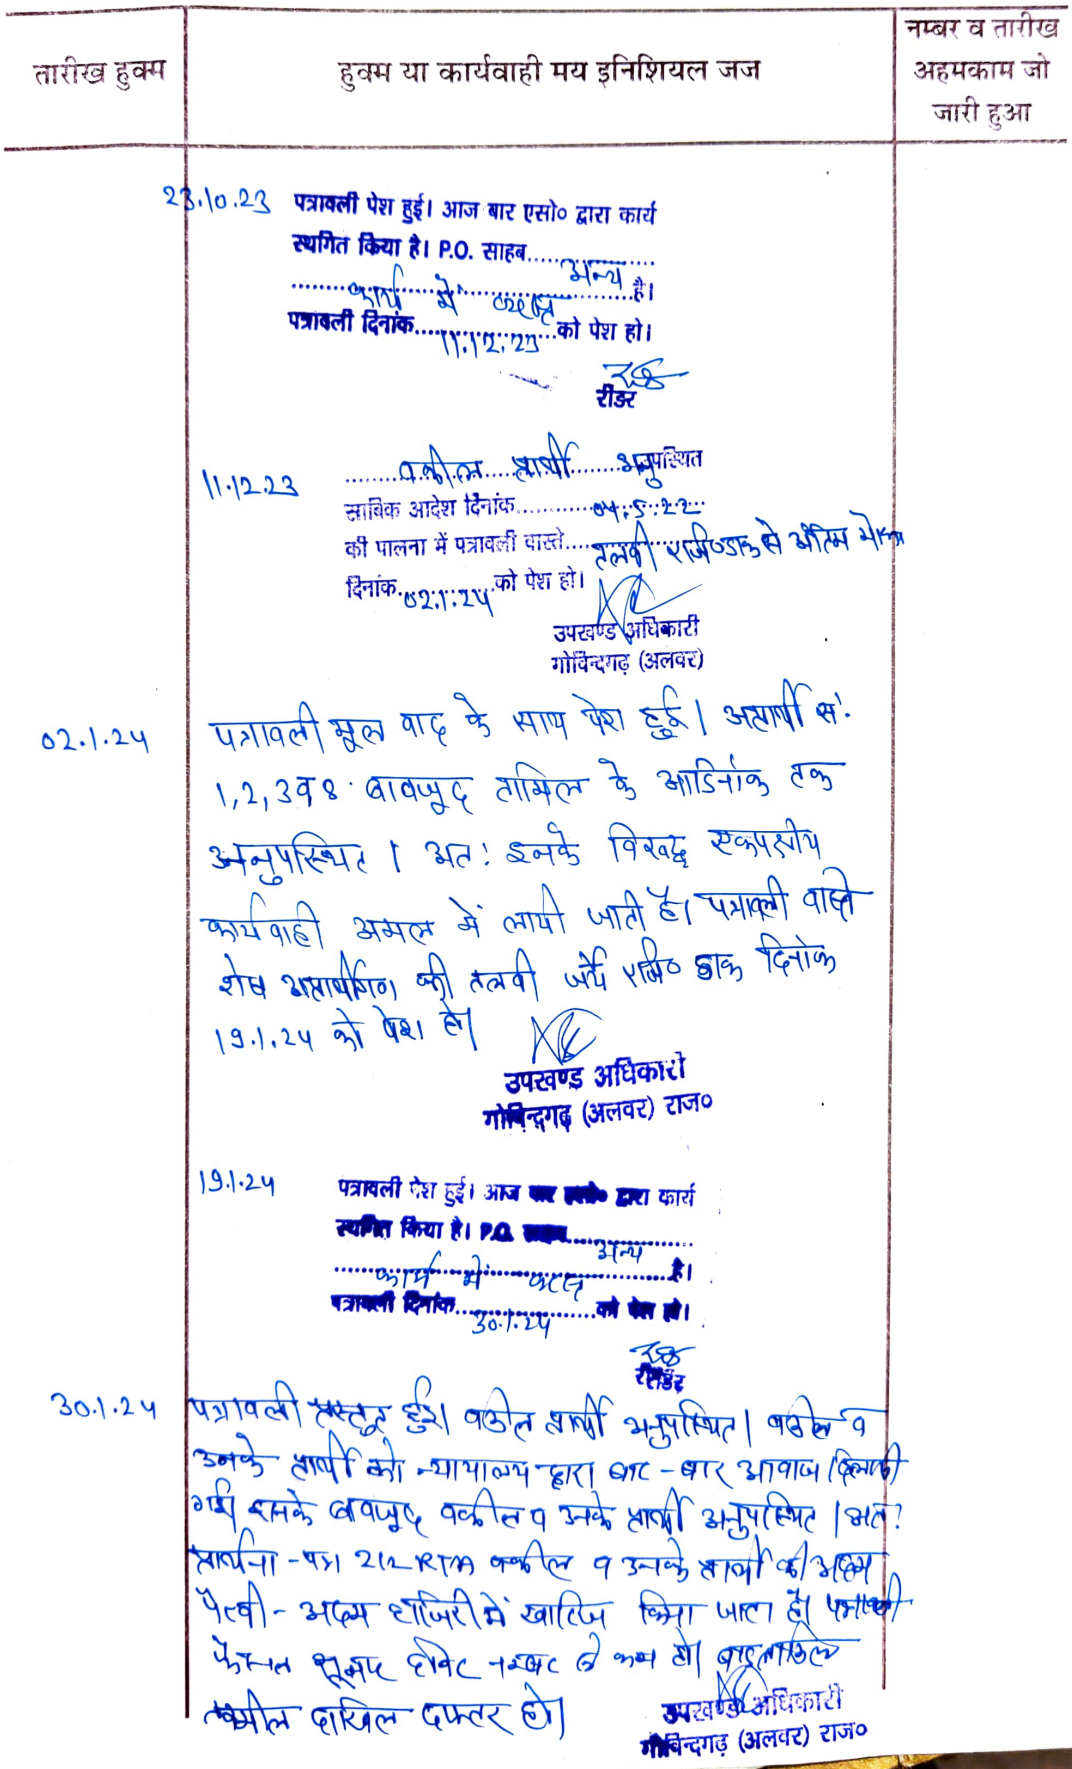 तारीख हुक्म
हुक्म या कार्यवाही मय इनिशियल जज
नम्बर व तारीख
अहमकाम जो
जारी हुआ
23.10.23 पत्रावली पेश हुई। आज बार एसो० द्वारा कार्य
स्थगित किया है। P.O. साहब.....अन्य.....
.....कार्य में व्यस्त.....है।
पत्रावली दिनांक.....11.12.23.....को पेश हो।
रीडर
11.12.23 .....वकील प्रार्थी.....अनुपस्थित
साबिक आदेश दिनांक.....04.5.22.....
की पालना में पत्रावली वास्ते.....तलबी रजि०डाक से अंतिम मौका
दिनांक.02.1.24.को पेश हो।
उपखण्ड अधिकारी
गोविन्दगढ़ (अलवर)
02.1.24 पत्रावली मूल वाद के साथ पेश हुई। अप्रार्थी सं.
1,2,3 व 8 बावजूद तामिल के आदिनांक तक
अनुपस्थित । अत: इनके विरुद्ध एकपक्षीय
कार्यवाही अमल में लायी जाती है। पत्रावली वास्ते
शेष अप्रार्थीगण की तलबी जर्ये रजि० डाक दिनांक
19.1.24 को पेश हो।
उपखण्ड अधिकारी
गोविन्दगढ़ (अलवर) राज०
19.1.24 पत्रावली पेश हुई। आज बार एसो० द्वारा कार्य
स्थगित किया है। P.O. साहब.....अन्य.....
.....कार्य में व्यस्त.....है।
पत्रावली दिनांक.....30.1.24.....को पेश हो।
रीडर
30.1.24 पत्रावली प्रस्तुत हुई। वकील प्रार्थी अनुपस्थित। वकील व
उनके प्रार्थी को न्यायालय द्वारा बार-बार आवाज दिलायी
गई। इसके बावजूद वकील व उनके प्रार्थी अनुपस्थित । अत:
प्रार्थना-पत्र 212 RTA वकील व उनके प्रार्थी की अदम
पैरवी-अदम हाजिरी में खारिज किया जाता है। पत्रावली
फैसल शुमार होकर नम्बर से कम हो। बाद
तकमील दाखिल दफ्तर हो।
उपखण्ड अधिकारी
गोविन्दगढ़ (अलवर) राज०